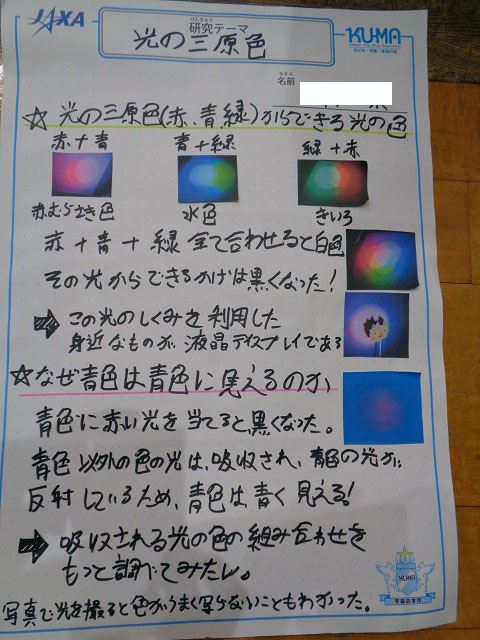 JAXA
けんきゅう
研究テーマ
光の三原色
KU-MA
なまえ
名前
☆ 光の三原色(赤、青緑)からできる光の色
赤+青 青+緑 緑+赤
赤むらさき色 水色 きいろ
赤+青+緑 全て合わせると白色
その光からできるかげは黒くなった!
➡ この光のしくみを利用した
身近なものが、液晶ディスプレイである
☆なぜ青色は青色に見えるのか
青色に赤い光を当てると黒くなった。
青色以外の色の光は、吸収され、青色の光が、
反射しているため、青色は、青く見える!
➡ 吸収される光の色の組み合わせを
もっと調べてみたい。
KU-MA
宇宙の学校
写真で光を撮ると色がうまく写らないこともわかった。